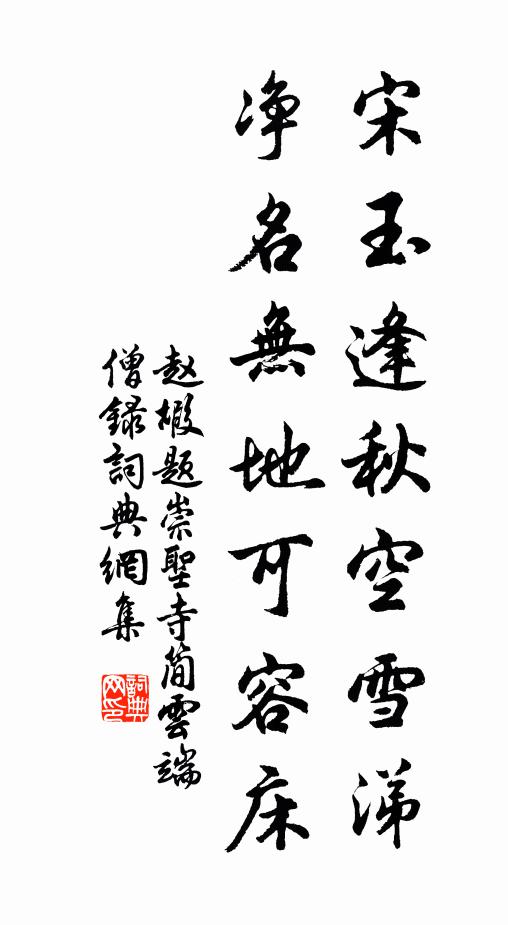 宋玉逢秋空雪涕
净名無地可容床
赵嘏题崇聖寺简雲端
僧録詞典網集
詞典
网印